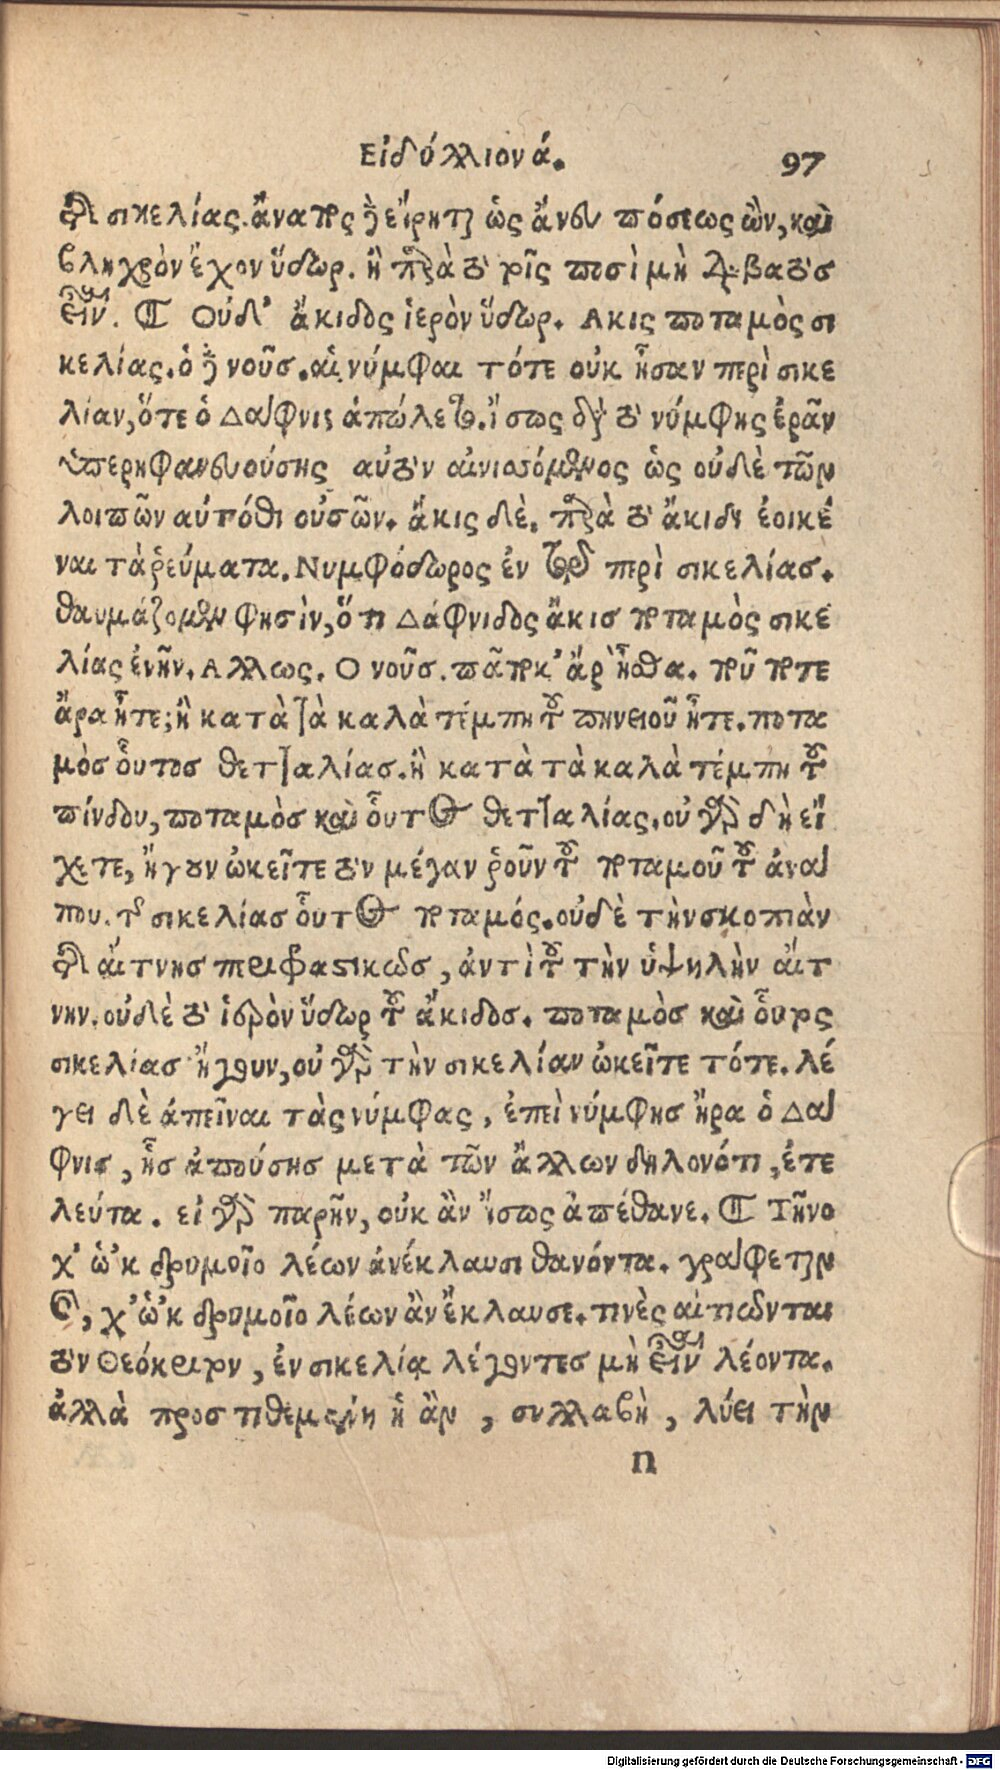 Εἰδύλλιον ά. 97
τῆς σικελίας. ἄναπος δὲ εἴρηται ὡς ἄνευ πόσεως ὢν, καὶ
βληχρὸν ἔχον ὕδωρ. ἢ παρὰ τὸ τοῖς ποσὶ μὴ διαβατὸς
εἶναι. ¶ Οὐδ' ἄκιδος ἱερὸν ὕδωρ. Ακις ποταμὸς σι
κελίας. ὁ δὲ νοῦσ. αἱ νύμφαι τότε οὐκ ἦσαν περὶ σικε
λίαν, ὅτε ὁ Δάφνις ἀπώλετο. ἴσως διὰ τὸ νύμφης ἐρᾶν
ὑπερηφανευούσης αὐτὸν αἰνιατόμενος ὡς οὐδὲ τῶν
λοιπῶν αὐτόθι οὐσῶν. ἄκις δὲ. παρὰ τὸ ἄκιδι ἐοικέ
ναι τὰ ῥεύματα. Νυμφόδωρος ἐν τῷ περὶ σικελίασ.
θαυμάζομένων φησὶν, ὅτι Δάφνιδος ἄκισ ποταμὸς σικε
λίας ἐνῆν. Αλλως. Ο νοῦσ. πᾶ ποκ' ἄρ' ἦσθα. ποῦ ποτε
ἄρα ἦτε; ἢ κατὰ τὰ καλὰ τέμπη τοῦ πηνειοῦ ἦτε. ποτα
μὸσ οὗτοσ θετταλίασ. ἢ κατὰ τὰ καλὰ τέμπη τοῦ
πίνδου, ποταμὸσ καὶ οὗτος θετταλίας. οὐ γὰρ δὴ εἴ
χετε, ἤγουν ὠκεῖτε τὸν μέγαν ῥοῦν τοῦ ποταμοῦ τοῦ ἀνά
που. τῆς σικελίασ οὗτος ποταμός. οὐδὲ τὴν σκοπιὰν
τῆς αἴτνησ περιφραστικῶσ, ἀντὶ τοῦ τὴν ὑψηλὴν αἴτ
νην. οὐδὲ τὸ ἱερὸν ὕδωρ τοῦ ἄκιδοσ. ποταμὸσ καὶ οὗτος
σικελίασ ἤγουν, οὐ γὰρ τὴν σικελίαν ὠκεῖτε τότε. λέ
γει δὲ ἀπεῖναι τὰς νύμφας, ἐπεὶ νύμφησ ἤρα ὁ Δά
φνισ, ἧσ ἀπούσησ μετὰ τῶν ἄλλων δηλονότι, ἐτε
λεύτα. εἰ γὰρ παρῆν, οὐκ ἂν ἴσως ἀπέθανε. ¶ Τῆνο
χ' ὡ'κ δρυμοῖο λέων ἀνέκλαυσι θανόντα. γράφεται
καὶ, χ' ὡ'κ δρυμοῖο λέων ἂν ἔκλαυσε. τινὲς αἰτιῶνται
τὸν Θεόκριτον, ἐν σικελίᾳ λέγοντεσ μὴ εἶναι λέοντα.
ἀλλὰ προστιθεμένη ἡ ἂν, συλλαβὴ, λύει τὴν
n
Digitalisierung gefördert durch die Deutsche Forschungsgemeinschaft - DFG